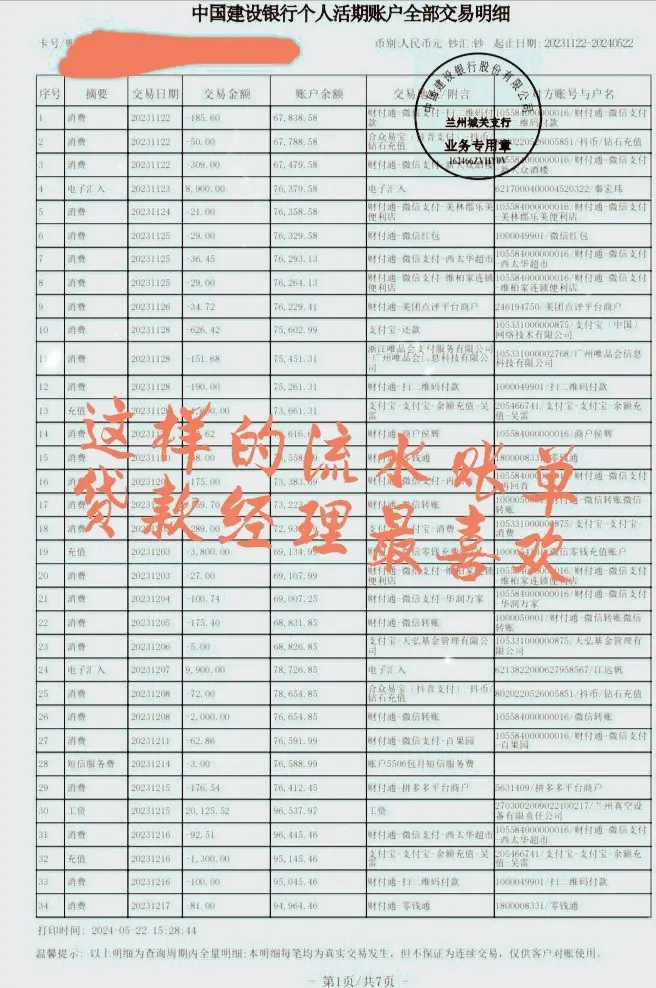 中国建设银行个人活期账户全部交易明细
卡号/账
币别:人民币元 钞汇:钞 起止日期: 20231122-20240522
序号 摘要 交易日期 交易金额 账户余额 交易 附言 对方账号与户名
中国建设银行股份有限公司
兰州城关支行
业务专用章
1 消费 20231122 -185.60 67,838.58 财付通-微信支付-扫二维码付款
2 消费 20231122 -50.00 67,788.58 合众易宝(抖音支付)-抖币/钻石充值 抖币/钻石充值
消费 20231122 -309.00 67,479.58 财付通-微信支付
4 电子汇入 20231123 8,900.00 76,379.58 电子汇入 6217000040004520322/秦宏玮
5 消费 20231124 -21.00 76,358.58 财付通-微信支付-美林郡乐美便利店 105584000000016/财付通-微信支付-美林郡乐美便利店
6 消费 20231125 -29.00 76,329.58 财付通-微信红包 1000049901/微信红包
7 消费 20231125 -36.45 76,293.13 财付通-微信支付-西太华超市 105584000000016/财付通-微信支付-西太华超市
8 消费 20231125 -29.00 76,264.13 财付通-微信支付-维柏家连锁便利店 105584000000016/财付通-微信支付-维柏家连锁便利店
9 消费 20231126 -34.72 76,229.41 财付通-美团点评平台商户 246194750/美团点评平台商户
10 消费 20231128 -626.42 75,602.99 支付宝-还款 105331000000875/支付宝（中国）网络技术有限公司
11 消费 20231128 -151.68 75,451.31 浙江唯品会支付服务有限公司-广州唯品会信息科技有限公司 105331000002768/广州唯品会信息科技有限公司
12 消费 20231128 -190.00 75,261.31 财付通-扫二维码付款 1000049901/扫二维码付款
13 充值 73,661.31 支付宝-支付宝-余额充值-吴雷 205466741/支付宝-支付宝-余额充值-吴雷
14 消费 财付通-商户侯辉 105584000000016/商户侯辉
15 消费 零钱通 1800008331/零钱通
16 消费 -175.00 73,383.69 财付通-微信支付
17 消费 微信转账 财付通-微信转账微信转账
18 消费 -289.00 支付宝-消费 105331000000875/支付宝-支付宝-消费
19 充值 20231203 -3,800.00 69,134.99 微信零钱充值账户
20 消费 20231203 -27.00 69,107.99 财付通-微信支付-维柏家连锁便利店 财付通-微信支付-维柏家连锁便利店
21 消费 20231204 -100.74 69,007.25 财付通-微信支付-华润万家 105584000000016/财付通-微信支付-华润万家
22 消费 20231205 -175.40 68,831.85 财付通-微信转账 1000050001/财付通-微信转账微信转账
23 消费 20231206 -5.00 68,826.85 支付宝-天弘基金管理有限公司 105331000000875/天弘基金管理有限公司
24 电子汇入 20231207 9,900.00 78,726.85 电子汇入 6213822000627958567/江远帆
25 消费 20231208 -72.00 78,654.85 合众易宝（抖音支付）-抖币/钻石充值 8020220526005851/抖币/钻石充值
26 消费 20231208 -2,000.00 76,654.85 财付通-微信转账 105584000000016/微信转账
27 消费 20231211 -62.86 76,591.99 财付通-微信支付-百果园 105584000000016/财付通-微信支付-百果园
28 短信服务费 20231214 -3.00 76,588.99 账户5506包月短信服务费
29 消费 20231215 -176.54 76,412.45 财付通-拼多多平台商户 5631409/拼多多平台商户
30 工资 20231215 20,125.52 96,537.97 工资 2703002009022100217/兰州真空设备有限责任公司
31 消费 20231216 -92.51 96,445.46 财付通-微信支付-西太华超市 105584000000016/财付通-微信支付-西太华超市
32 充值 20231216 -1,300.00 95,145.46 支付宝-支付宝-余额充值-吴雷 205466741/支付宝-支付宝-余额充值-吴雷
33 消费 20231216 -100.00 95,045.46 财付通-扫二维码付款 1000049901/扫二维码付款
34 消费 20231217 -81.00 94,964.46 财付通-零钱通 1800008331/零钱通
这样的流水账单
贷款经理最喜欢
打印时间: 2024-05-22 15:28:44
温馨提示: 以上明细为查询周期内全量明细;本明细每笔均为真实交易发生，但不保证为连续交易，仅供客户对账使用。
- 第1页/共7页 -